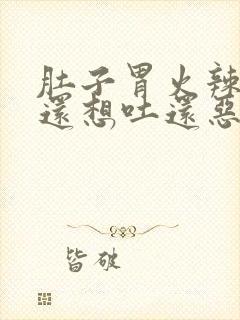 肚子胃火辣
還想吐還惡
皆破